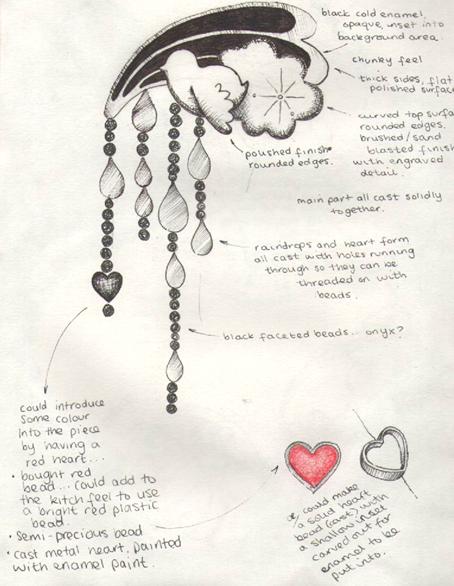 black cold enamel,
opaque, inset into
background area.
chunky feel
thick sides, flat
polished surface
curved top surfa
rounded edges.
brushed/sand
blasted finish
with engraved
detail.
polished finish
rounded edges.
main part all cast solidly
together.
raindrops and heart form
all cast with holes running
through so they can be
threaded on with
beads.
black faceted beads... onyx?
could introduce
some colour
into the piece
by having a
red heart...
• bought red
bead... could add to
the kitch feel to use
a bright red plastic
bead.
• semi-precious bead
• cast metal heart, painted
with enamel paint.
or, could make
a solid heart
bead (cast) with
a shallow inset
carved out for
enamel to be
put into.